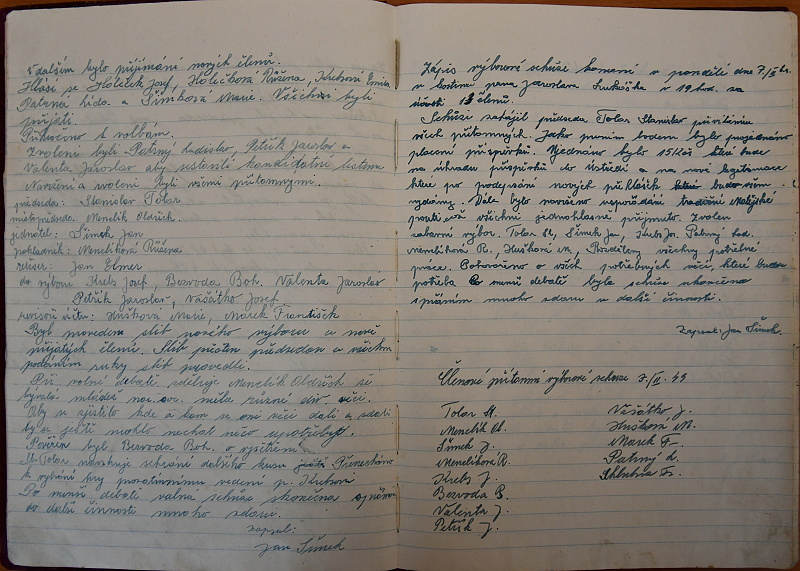 V dalším bylo přijímání nových členů.
Hlásí se Holeček Josef, Holečková Růžena, Krebsová Emia
Palečná Lída a Šimková Marie. Všichni byli
přijati.
Přikročeno k volbám.
Zvoleni byli Patrný Ladislav, Petřík Jaroslav a
Valenta Jaroslav aby sestavili kandidátní listinu
Navrženi a zvoleni byli všemi přítomnými.
předseda: Stanislav Tolar
místopředseda: Menclík Oldřich.
jednatel: Šimek Jan
pokladník: Menclíková Růžena
režisér: Jan Elmer
do výboru Krebs Josef, Bezvoda Boh. Valenta Jaroslav
Petřík Jaroslav, Vašátko Josef
revisoři účtů: Hušková Marie, Marek František
Byl proveden slib nového výboru a nově
přijatých členů. Slib přečten předsedou a všichni
podáním ruky slib provedli.
Při volné debatě sděluje Menclík Oldřich že
bývalá mládež nar. soc. měla různé div. věci.
Aby se zjistilo kde a kam se oni věci dali a zdali
by se ještě mohlo nechat něco upotřebit.
Pověřen byl Bezvoda Boh. o zjištění.
Př. Tolar navrhuje sehrání dalšího kusu Přenecháno
k vybrání hry
Po menší debatě valná schůze skončena s přáním
do další činnosti mnoho zdaru.
Zapsal:
Jan Šimek
Zápis výborové schůze konané v pondělí dne 7/II hr.
v hostinci pana Jaroslava Lukáška v 19 hod. za
účasti 13 členů.
Schůzi zahájil předseda Tolar Stanislav přivítáním
všech přítomných. Jako prvním bodem bylo projednáno
placení příspěvků. Ujednáno bylo 15 Kčs které bude
na úhradu příspěvků do Ústředí a na nové legitimace
které po podepsání nových přihlášek budou nám
vydány. Dále bylo navrženo uspořádání tradiční Matějské
pouti což všichni jednohlasně přijmuto. Zvolen
zábavní výbor. Tolar St, Šimek Jan, Krebs Jos. Patrný Lad.
Menclíková R., Hušková M, Rozděleny všechny potřebné
práce. Pohovořeno o všech potřebných věcí, které budou
potřeba Po menší debatě byla schůze ukončena
s přáním mnoho zdaru v další činnosti.
Zapsal: Jan Šimek.
Členové přítomní výborové schůze 7./II. 49
Tolar St.
Menclík O.
Šimek J.
Menclíková R.
Krebs J.
Bezvoda B.
Valenta J.
Petřík J.
Vašátko J.
Hušková M.
Marek F.
Patrný L.